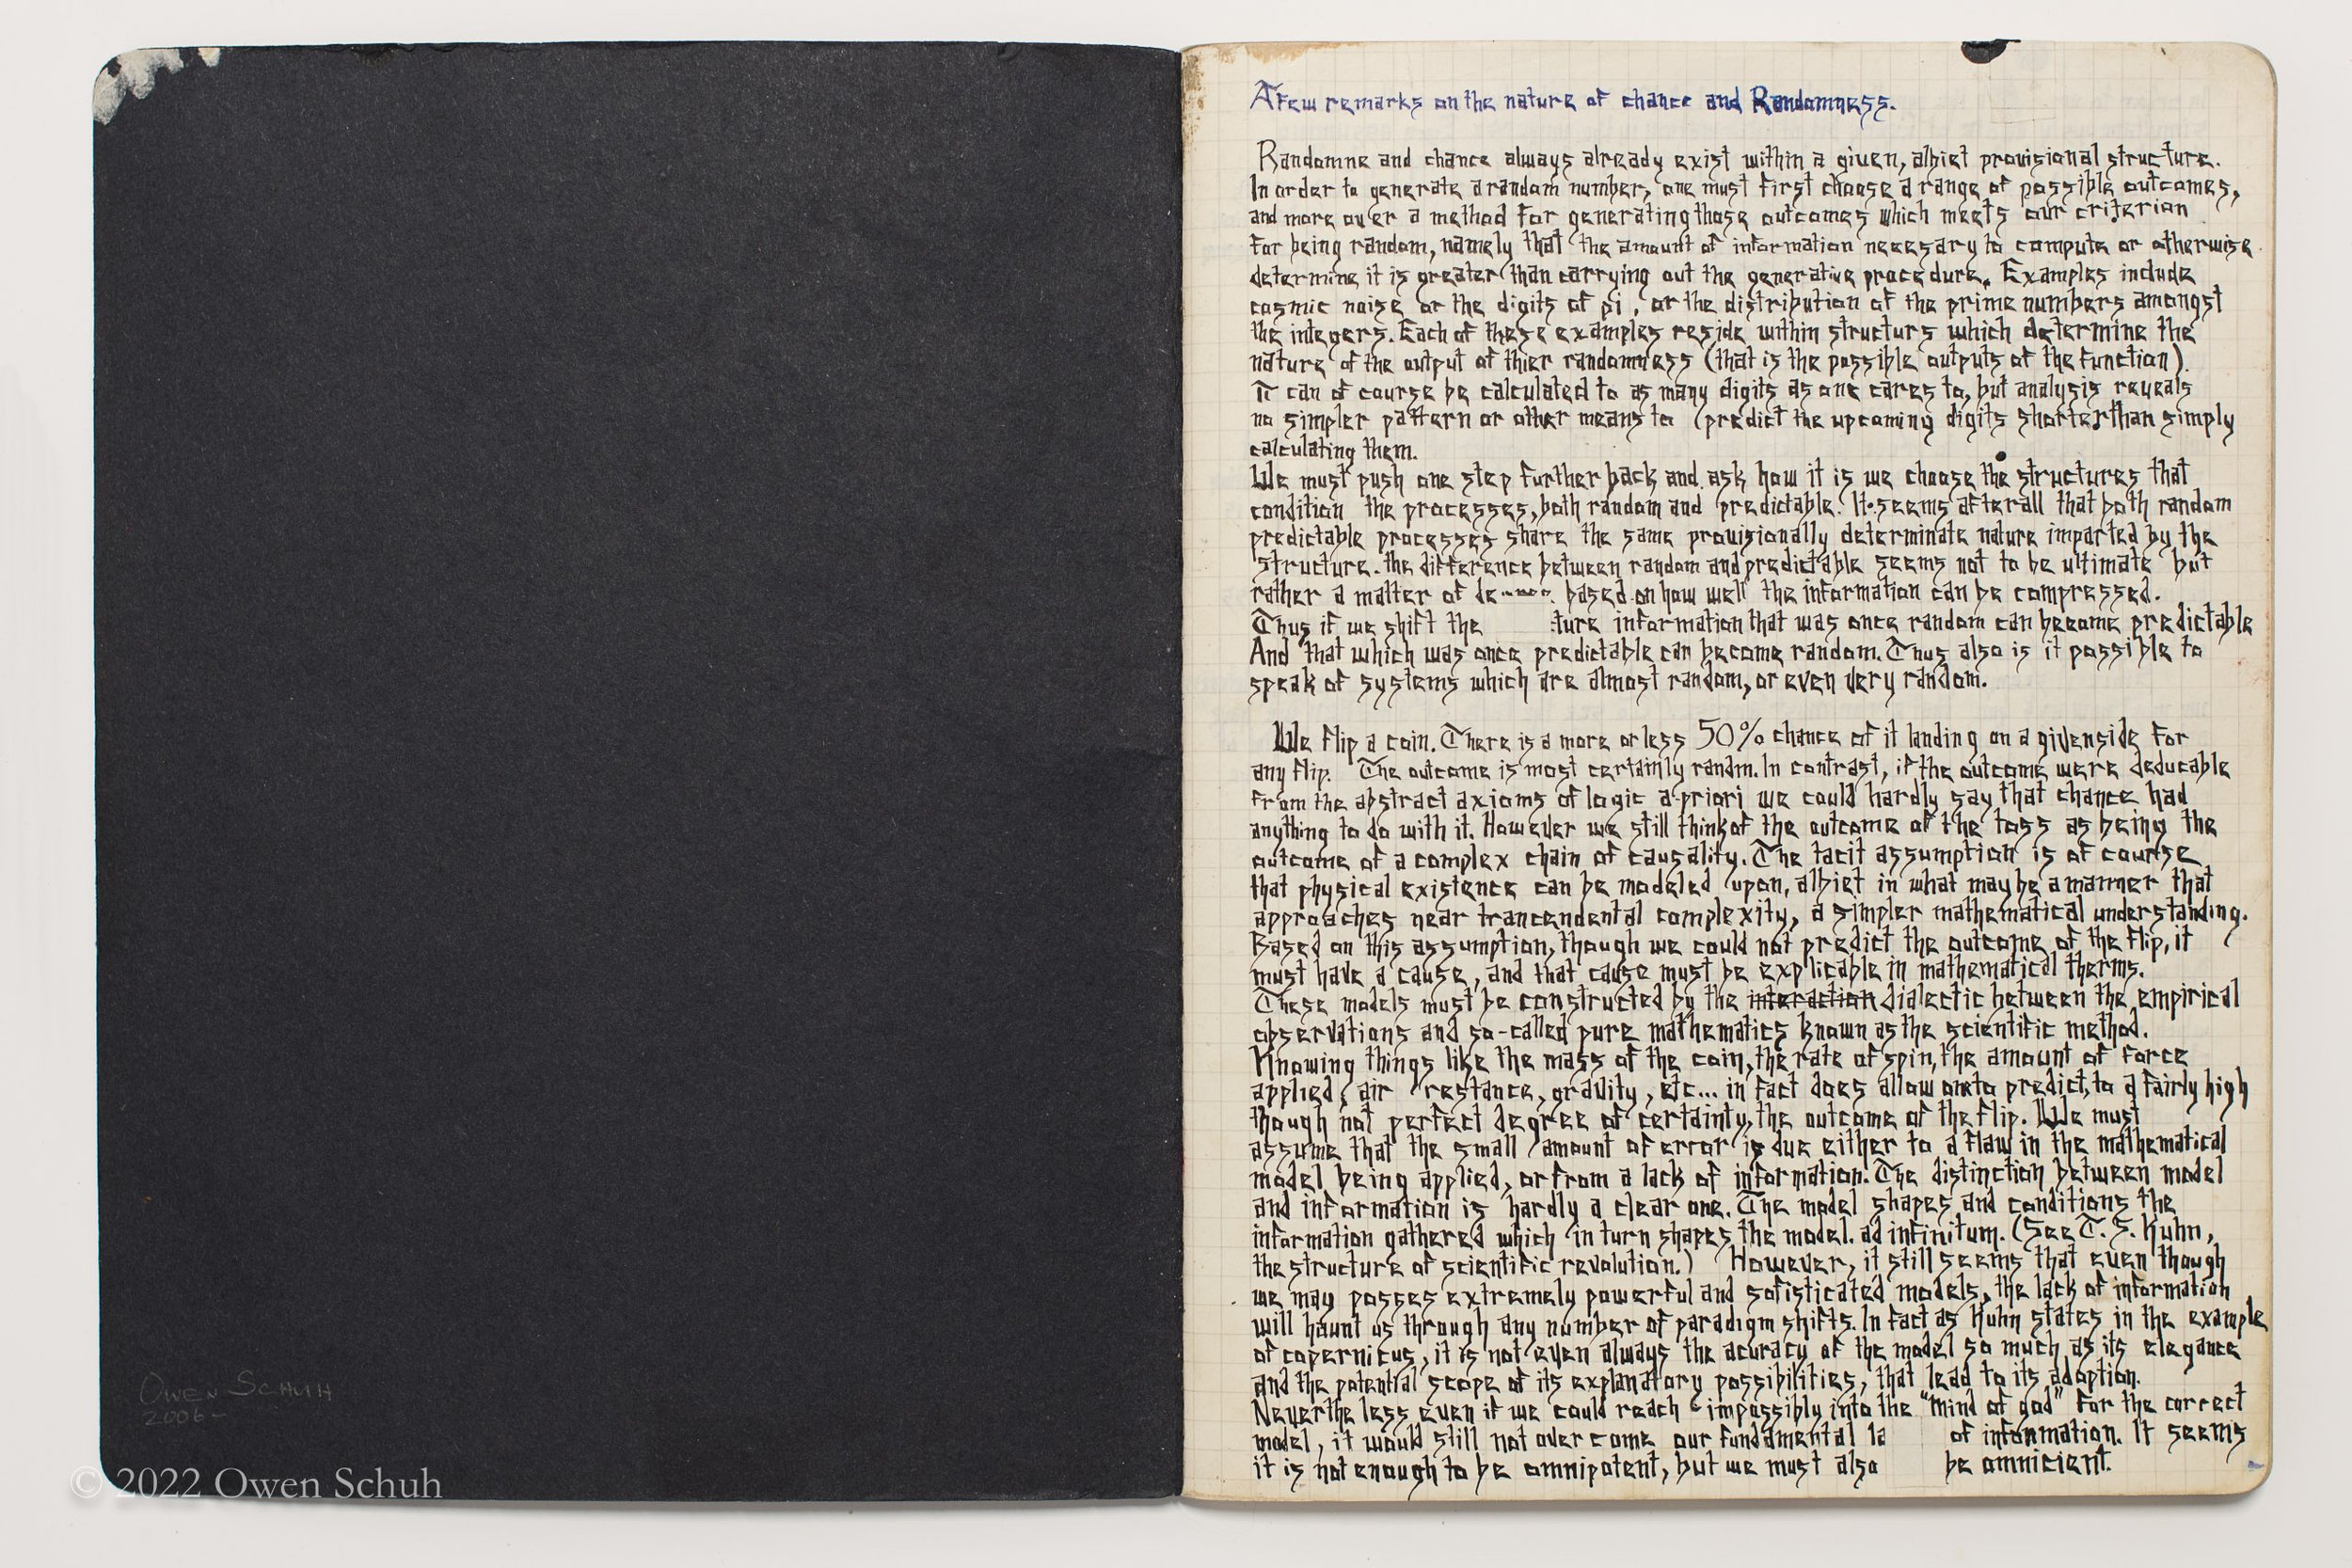 Owen Schuh
2006-
© 2022 Owen Schuh
A few remarks on the nature of chance and Randomness.
Randomne and chance always already exist within a given, albiet provisional structure.
In order to generate a random number, one must first choose a range of possible outcomes,
and more over a method for generating those outcomes which meets our criterion
for being random, namely that the amount of information necessary to compute or otherwise
determine it is greater than carrying out the generative procedure. Examples include
cosmic noise or the digits of pi, or the distribution of the prime numbers amongst
the integers. Each of these examples reside within structurs which determine the
nature of the output of thier randomness (that is the possible outputs of the function).
π can of course be calculated to as many digits as one cares to, but analysis reveals
no simpler pattern or other means to (predict the upcoming digits shorter than simply
calculating them.
We must push one step further back and ask how it is we choose the structures that
condition the processes, both random and predictable. It seems after all that both random
predictable processes share the same provisionally determinate nature imparted by the
structure. the difference between random and predictable seems not to be ultimate but
rather a matter of based on how well the information can be compressed.
Thus if we shift the ture information that was once random can become predictable
And that which was once predictable can become random. Thus also is it possible to
speak of systems which are almost random, or even very random.
We flip a coin. There is a more or less 50% chance of it landing on a given side for
any flip. The outcome is most certainly randm. In contrast, if the outcome were deducable
from the abstract axioms of logic a-priori we could hardly say that chance had
anything to do with it. However we still think of the outcome of the toss as being the
outcome of a complex chain of causality. The tacit assumption is of course
that physical existence can be modeled upon, albiet in what may be a manner that
approaches near trancendental complexity, a simpler mathematical understanding.
Based on this assumption, though we could not predict the outcome of the flip, it
must have a cause, and that cause must be explicable in mathematical therms.
These models must be constructed by the interaction dialectic between the empirical
observations and so-called pure mathematics known as the scientific method.
Knowing things like the mass of the coin, the rate of spin, the amount of force
applied, air restance, gravity, etc... in fact does allow one to predict, to a fairly high
though not perfect degree of certainty, the outcome of the flip. We must
assume that the small amount of error is due either to a flaw in the mathematical
model being applied, or from a lack of information. The distinction between model
and information is hardly a clear one. The model shapes and conditions the
information gathered which in turn shapes the model. ad infinitum. (See T. S. Kuhn,
the structure of scientific revolution.) However, it still seems that even though
we may posses extremely powerful and sofisticated models, the lack of information
will haunt us through any number of paradigm shifts. In fact as Kuhn states in the example
of copernicus, it is not even always the acuracy of the model so much as its elegance
and the potential scope of its explanatory possibilities, that lead to its adoption.
Never the less even if we could reach impossibly into the "mind of god" for the correct
model, it would still not over come our fundamental la of information. It seems
it is not enough to be omnipotent, but we must also be omnicient.